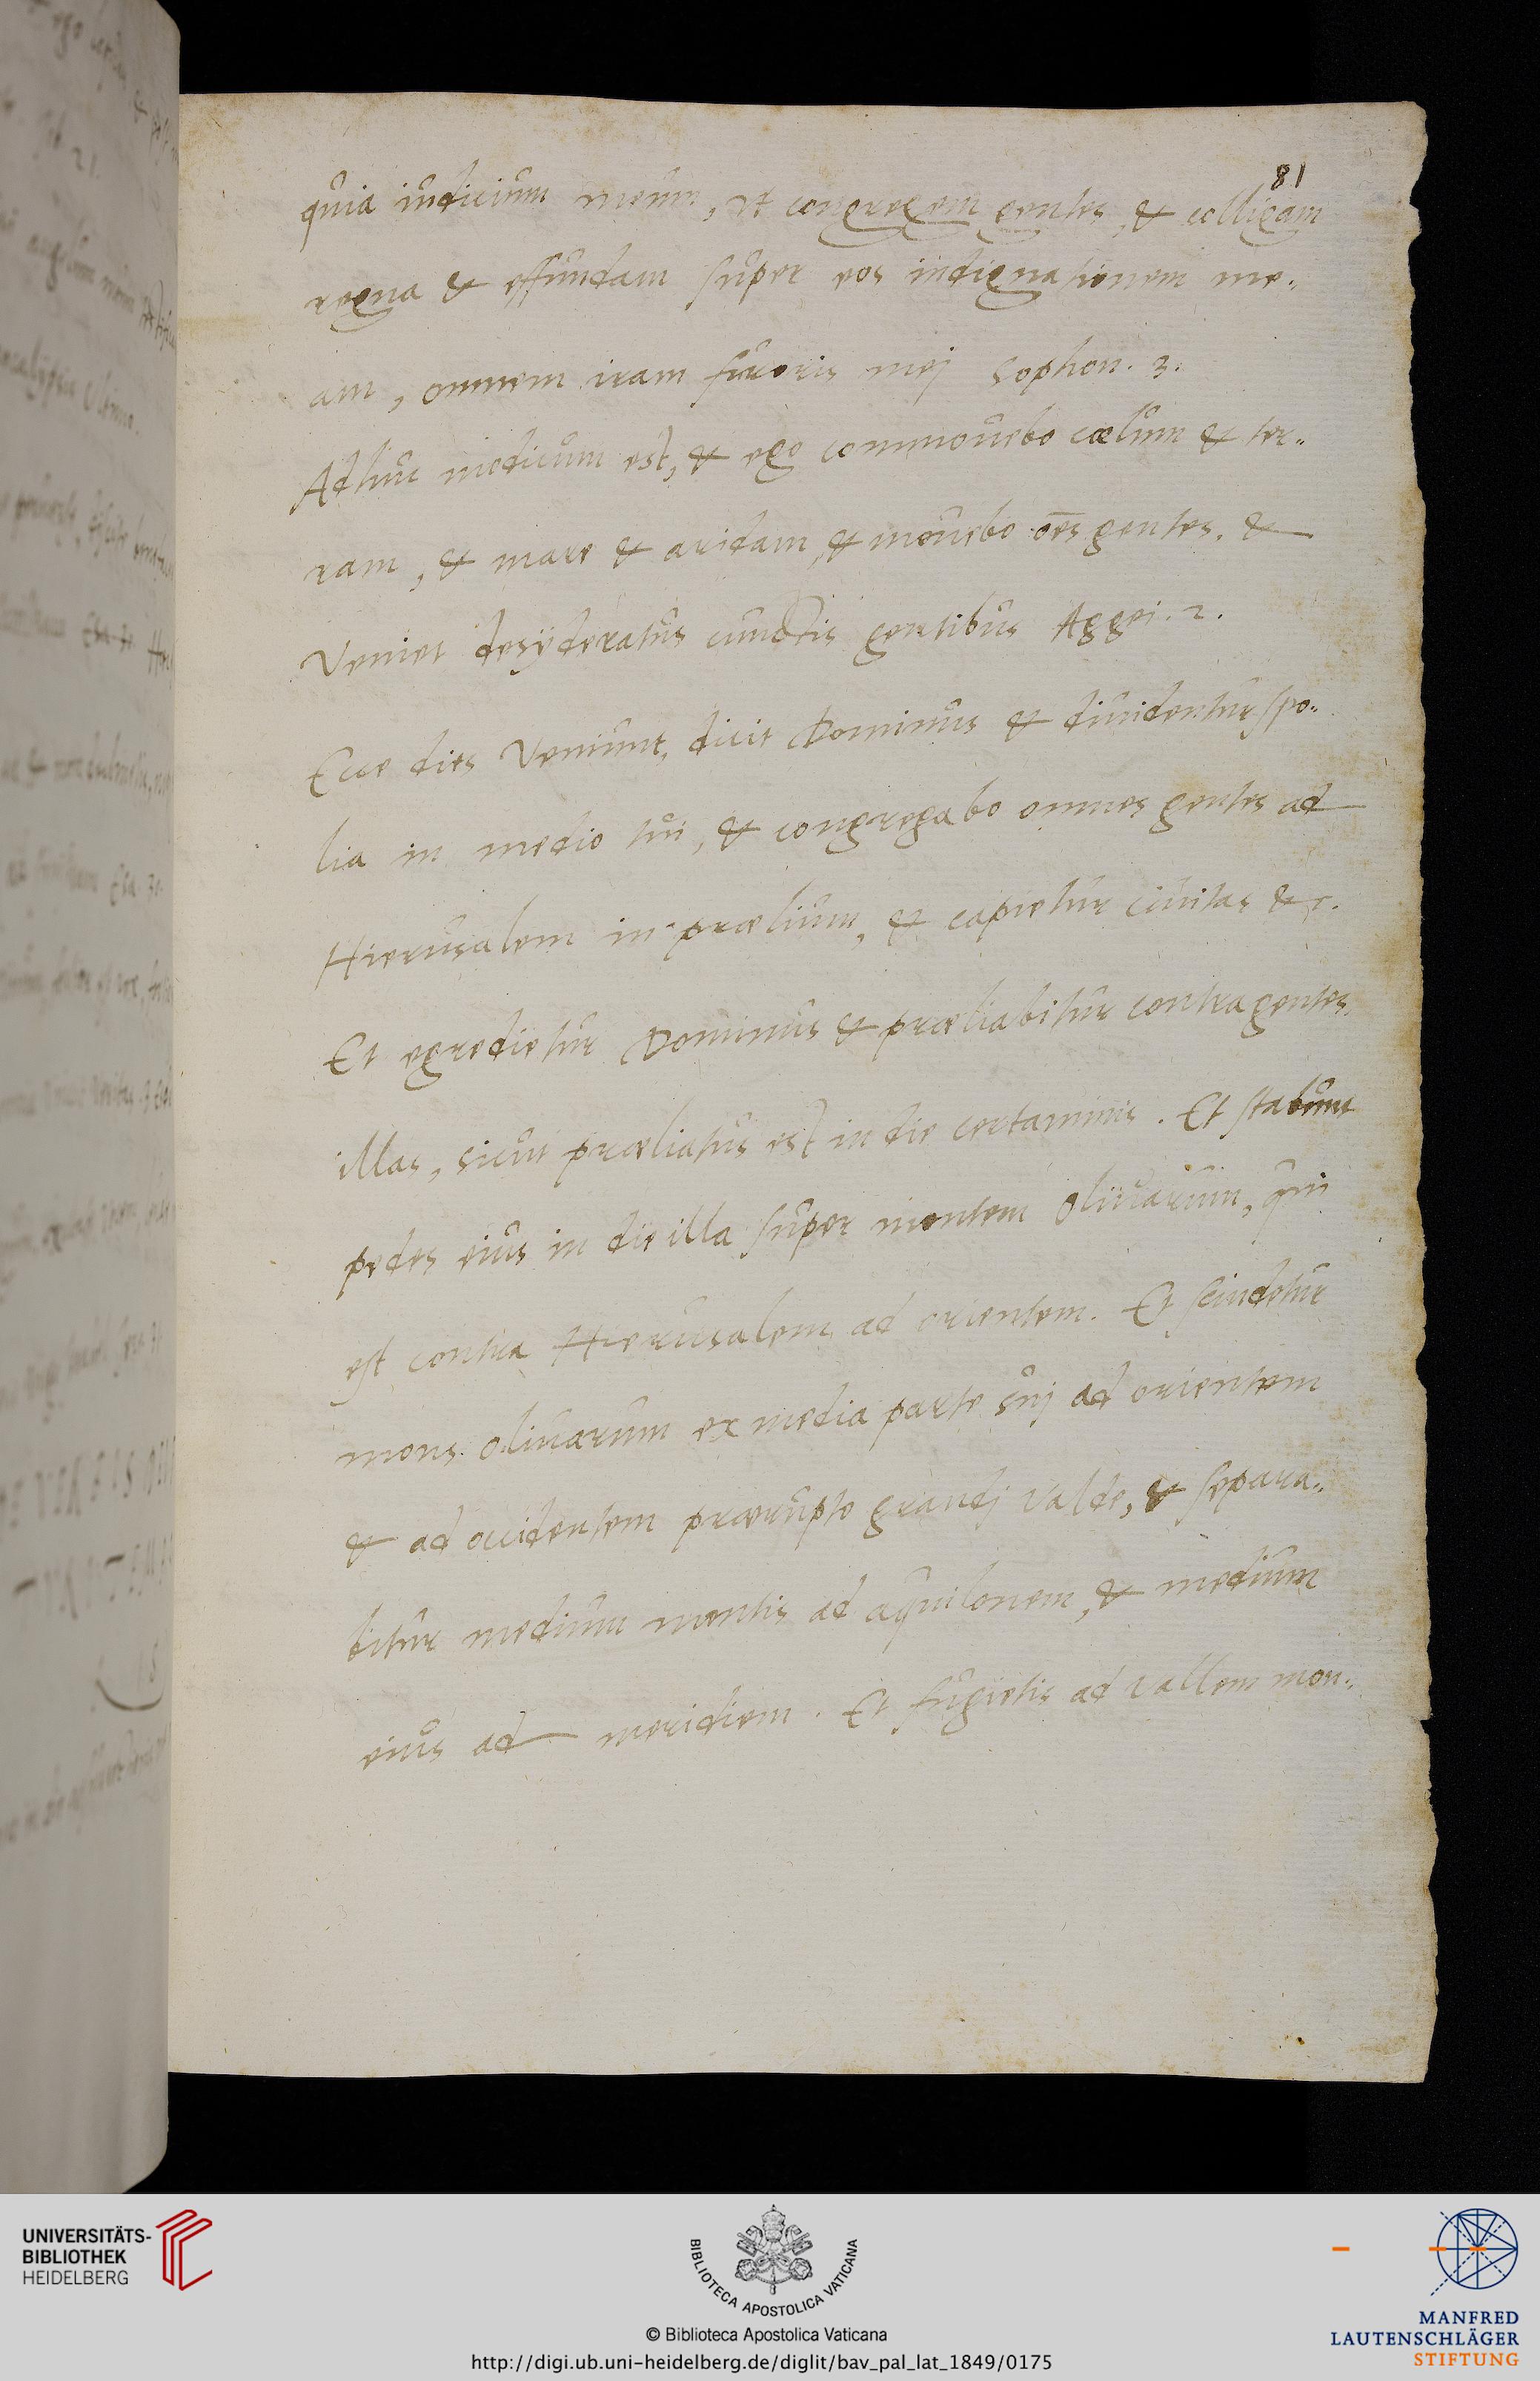 81
quia iudicium meum, vt congregem gentes, & colligam
regna & effundam super eos indignationem me..
am, omnem iram furoris mej Sophon. 3.
Adhuc modicum est, & ego commouebo cœlum & ter..
ram, & mare & aridam, & mouebo oēs gentes. &
Veniet desÿderatus cunctis gentibus Aggei. 2.
Ecce dies Veniunt, dicit Dominus & diuidentur spo..
lia in medio tui, & congregabo omnes gentes ad
Hierusalem in prælium, & capietur ciuitas &c.
Et egredietur Dominus & præliabitur contra gentes
illas, sicut præliatus est in die certaminis. Et stabunt
pedes eius in die illa super montem Oliuarum, qui
est contra Hierusalem ad orientem. Et scindetur
mons oliuarum ex media parte suj ad orientem
& ad occidentem prærupto grandj valde, & separa..
bitur medium montis ad aquilonem, & medium
eius ad meridiem. Et fugietis ad vallem mon..
UNIVERSITÄTS-
BIBLIOTHEK
HEIDELBERG
BIBLIOTECA APOSTOLICA VATICANA
© Biblioteca Apostolica Vaticana
http://digi.ub.uni-heidelberg.de/diglit/bav_pal_lat_1849/0175
MANFRED
LAUTENSCHLÄGER
STIFTUNG